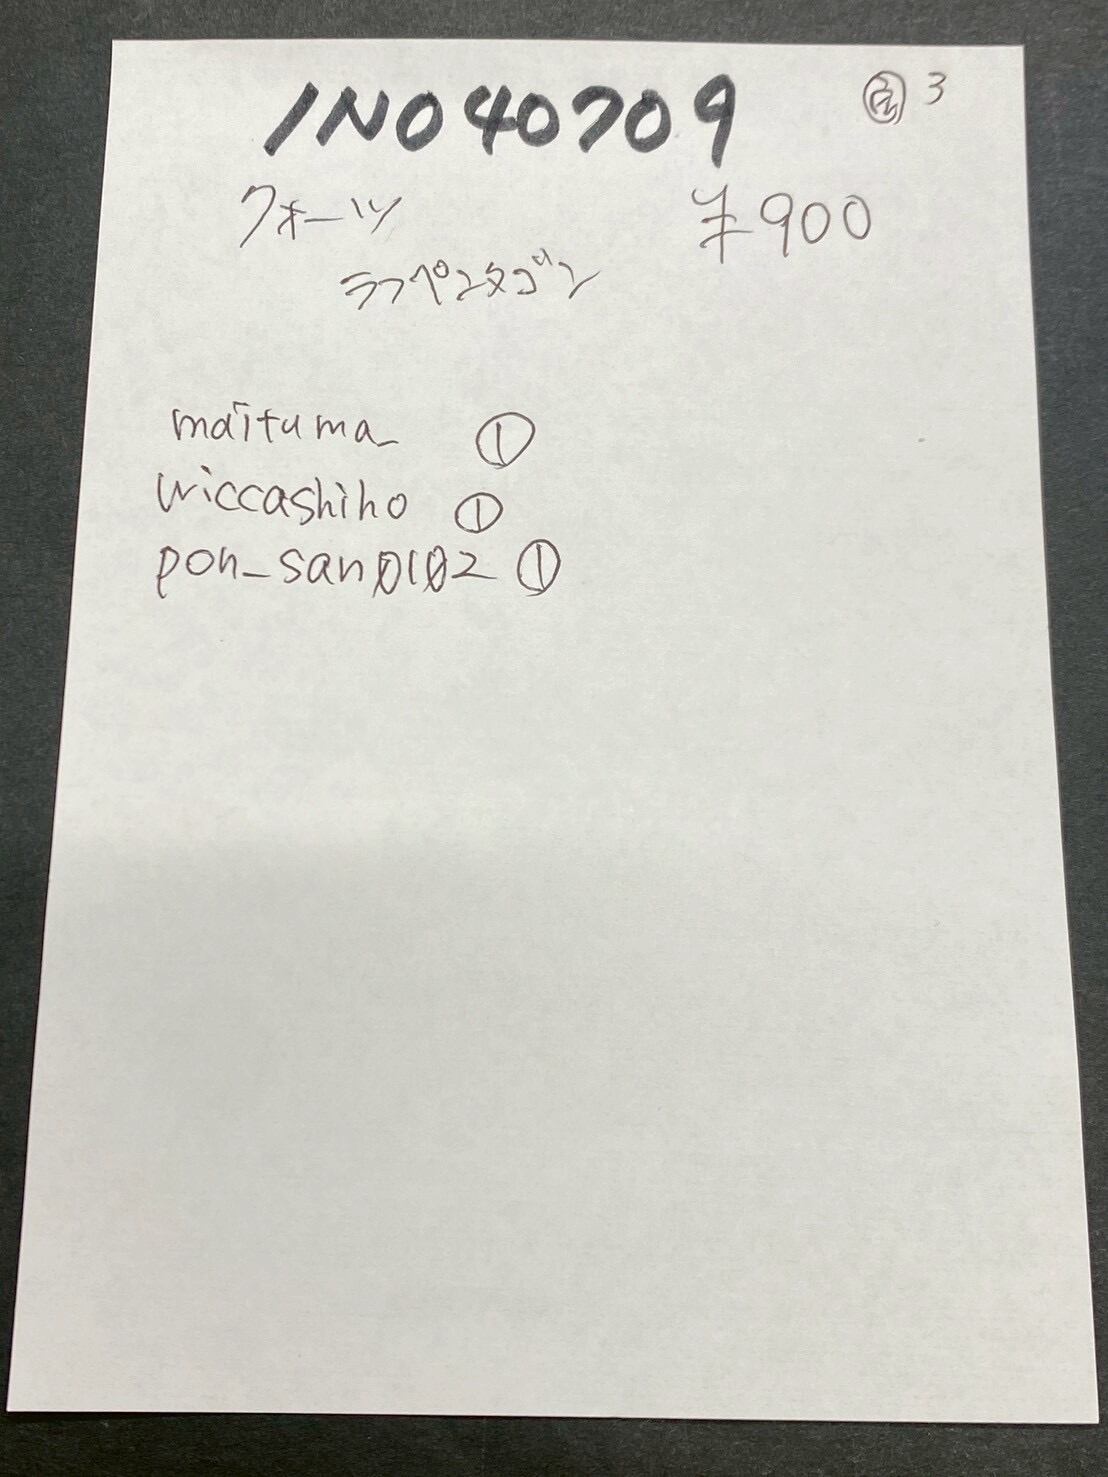 INO40709 3
クォーツ ¥900
ラフペンタゴン
maituma_ ①
wiccashiho ①
pon_san0102 ①